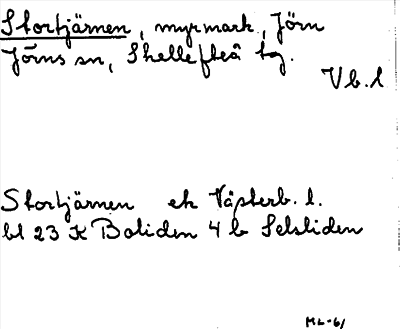 Stortjärnen, myrmark, Jörn
Jörns sn, Skellefteå tg.
Vb. l
Stortjärnen ek Västerb. l.
bl 23 K Boliden 4 b Selsliden
ML-61